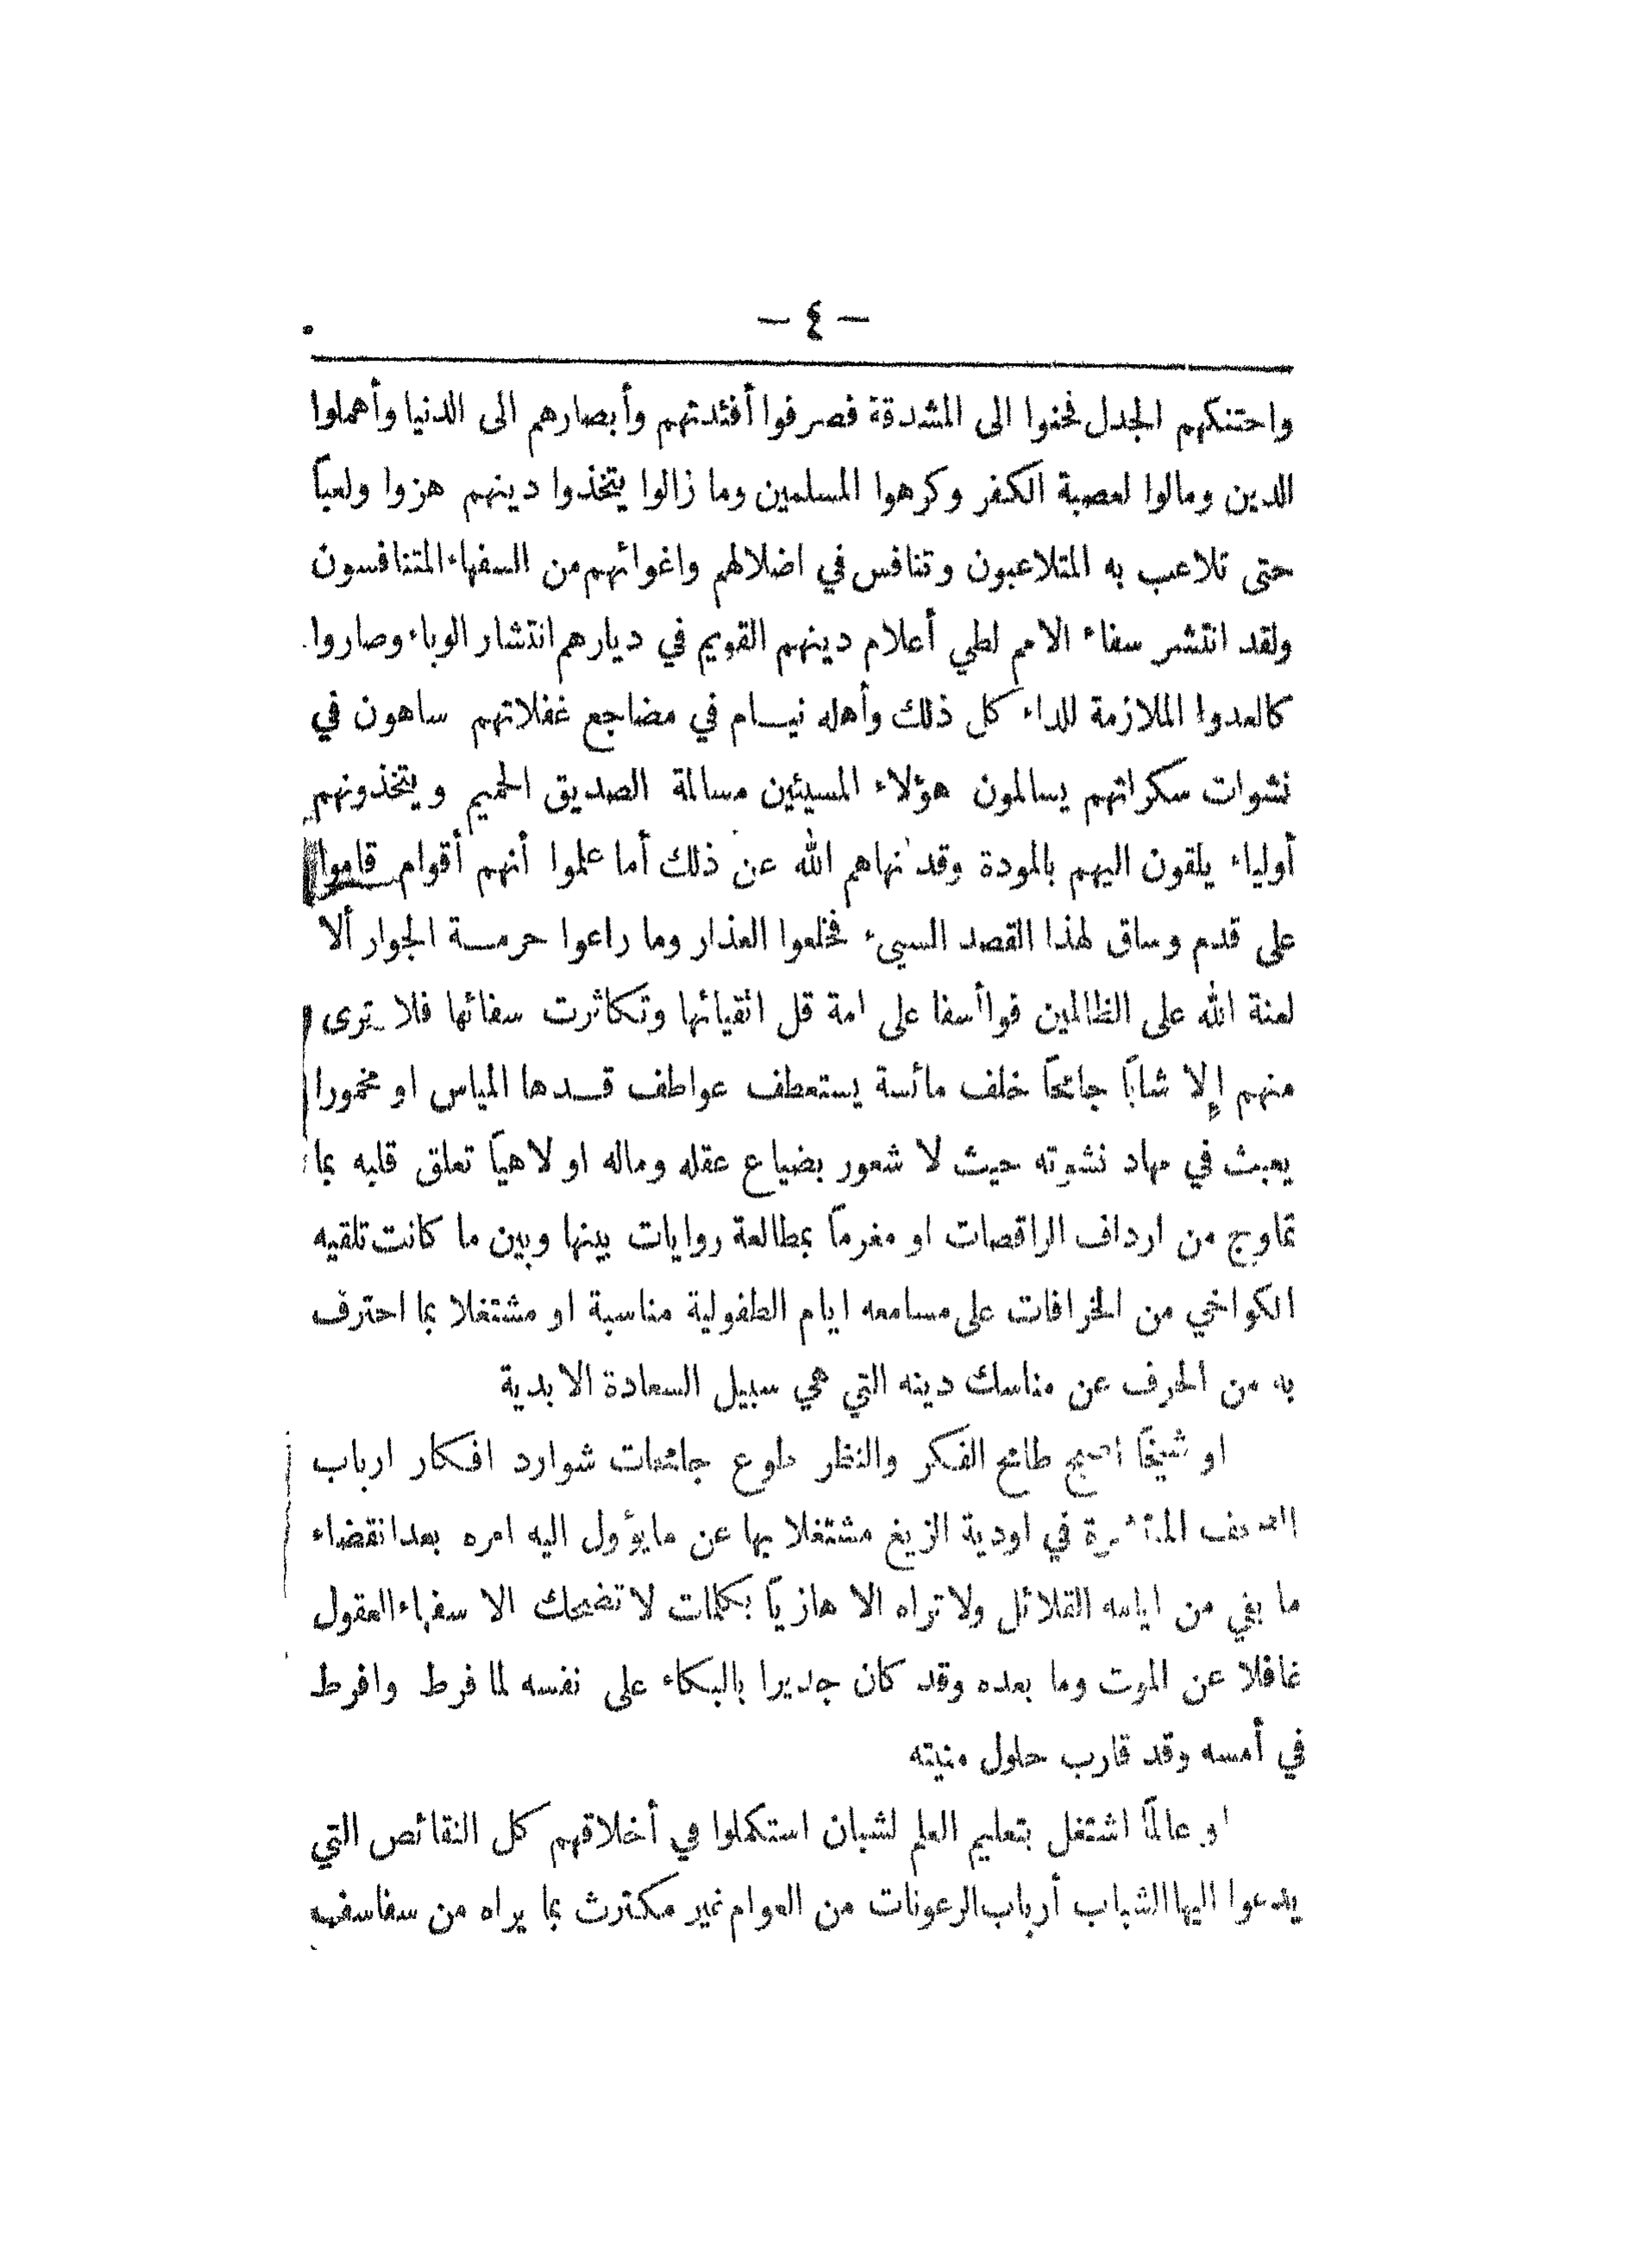 — ٤ —
واحتنكهم الجدل فحنوا الى المشدقة فصرفوا أفئدتهم وأبصارهم الى الدنيا وأهملوا
الدين ومالوا لعصبة الكفر وكرهوا المسلمين وما زالوا يتخذوا دينهم هزوا ولعباً
حتى تلاعب به المتلاعبون وتنافس في اضلالهم واغوائهم من السفهاء المتنافسون
ولقد انتشر سفاء الامم لطي أعلام دينهم القويم في ديارهم انتشار الوباء وصاروا
كالعدوا الملازمة للداء كل ذلك وأهله نيام في مضاجع غفلاتهم ساهون في
نشوات سكراتهم يسالمون هؤلاء المسيئين مسالمة الصديق الحميم ويتخذونهم
أولياء يلقون اليهم بالمودة وقد نهاهم الله عن ذلك أما علموا أنهم أقوام قاموا
على قدم وساق لهذا القصد السيء فخلعوا العذار وما راعوا حرمة الجوار ألا
لعنة الله على الظالمين فواأسفا على امة قل اتقيائها وتكاثرت سفائها فلا ترى
منهم إلا شاباً جائحاً خلف مائسة يستعطف عواطف قدها المياس او مخمورا
يعبث في مهاد نشوته حيث لا شعور بضياع عقله وماله او لاهياً تعلق قلبه بما
تماوج من ارداف الراقصات او مغرماً بمطالعة روايات بينها وبين ما كانت تلقيه
الكواخي من الخرافات على مسامعه ايام الطفولية مناسبة او مشتغلا بما احترف
به من الحرف عن مناسك دينه التي هي سبيل السعادة الابدية
او شيخاً اصبح طائح الفكر والنظر طوع جائحات شوارد افكار ارباب
في اودية الزيغ مشتغلا بها عن ما يؤول اليه امره بعد انقضاء
ما بقي من ايامه القلائل ولا تراه الا هازياً بكلمات لا تضحك الا سفهاء العقول
غافلا عن الموت وما بعده وقد كان جديرا بالبكاء على نفسه لما فرط وافرط
في أمسه وقد قارب حلول منيته
او عالماً اشتغل بتعليم العلم لشبان استكملوا في أخلاقهم كل النقائص التي
يدعوا اليها الشباب أرباب الرعونات من العوام غير مكترث بما يراه من سفاسفهم